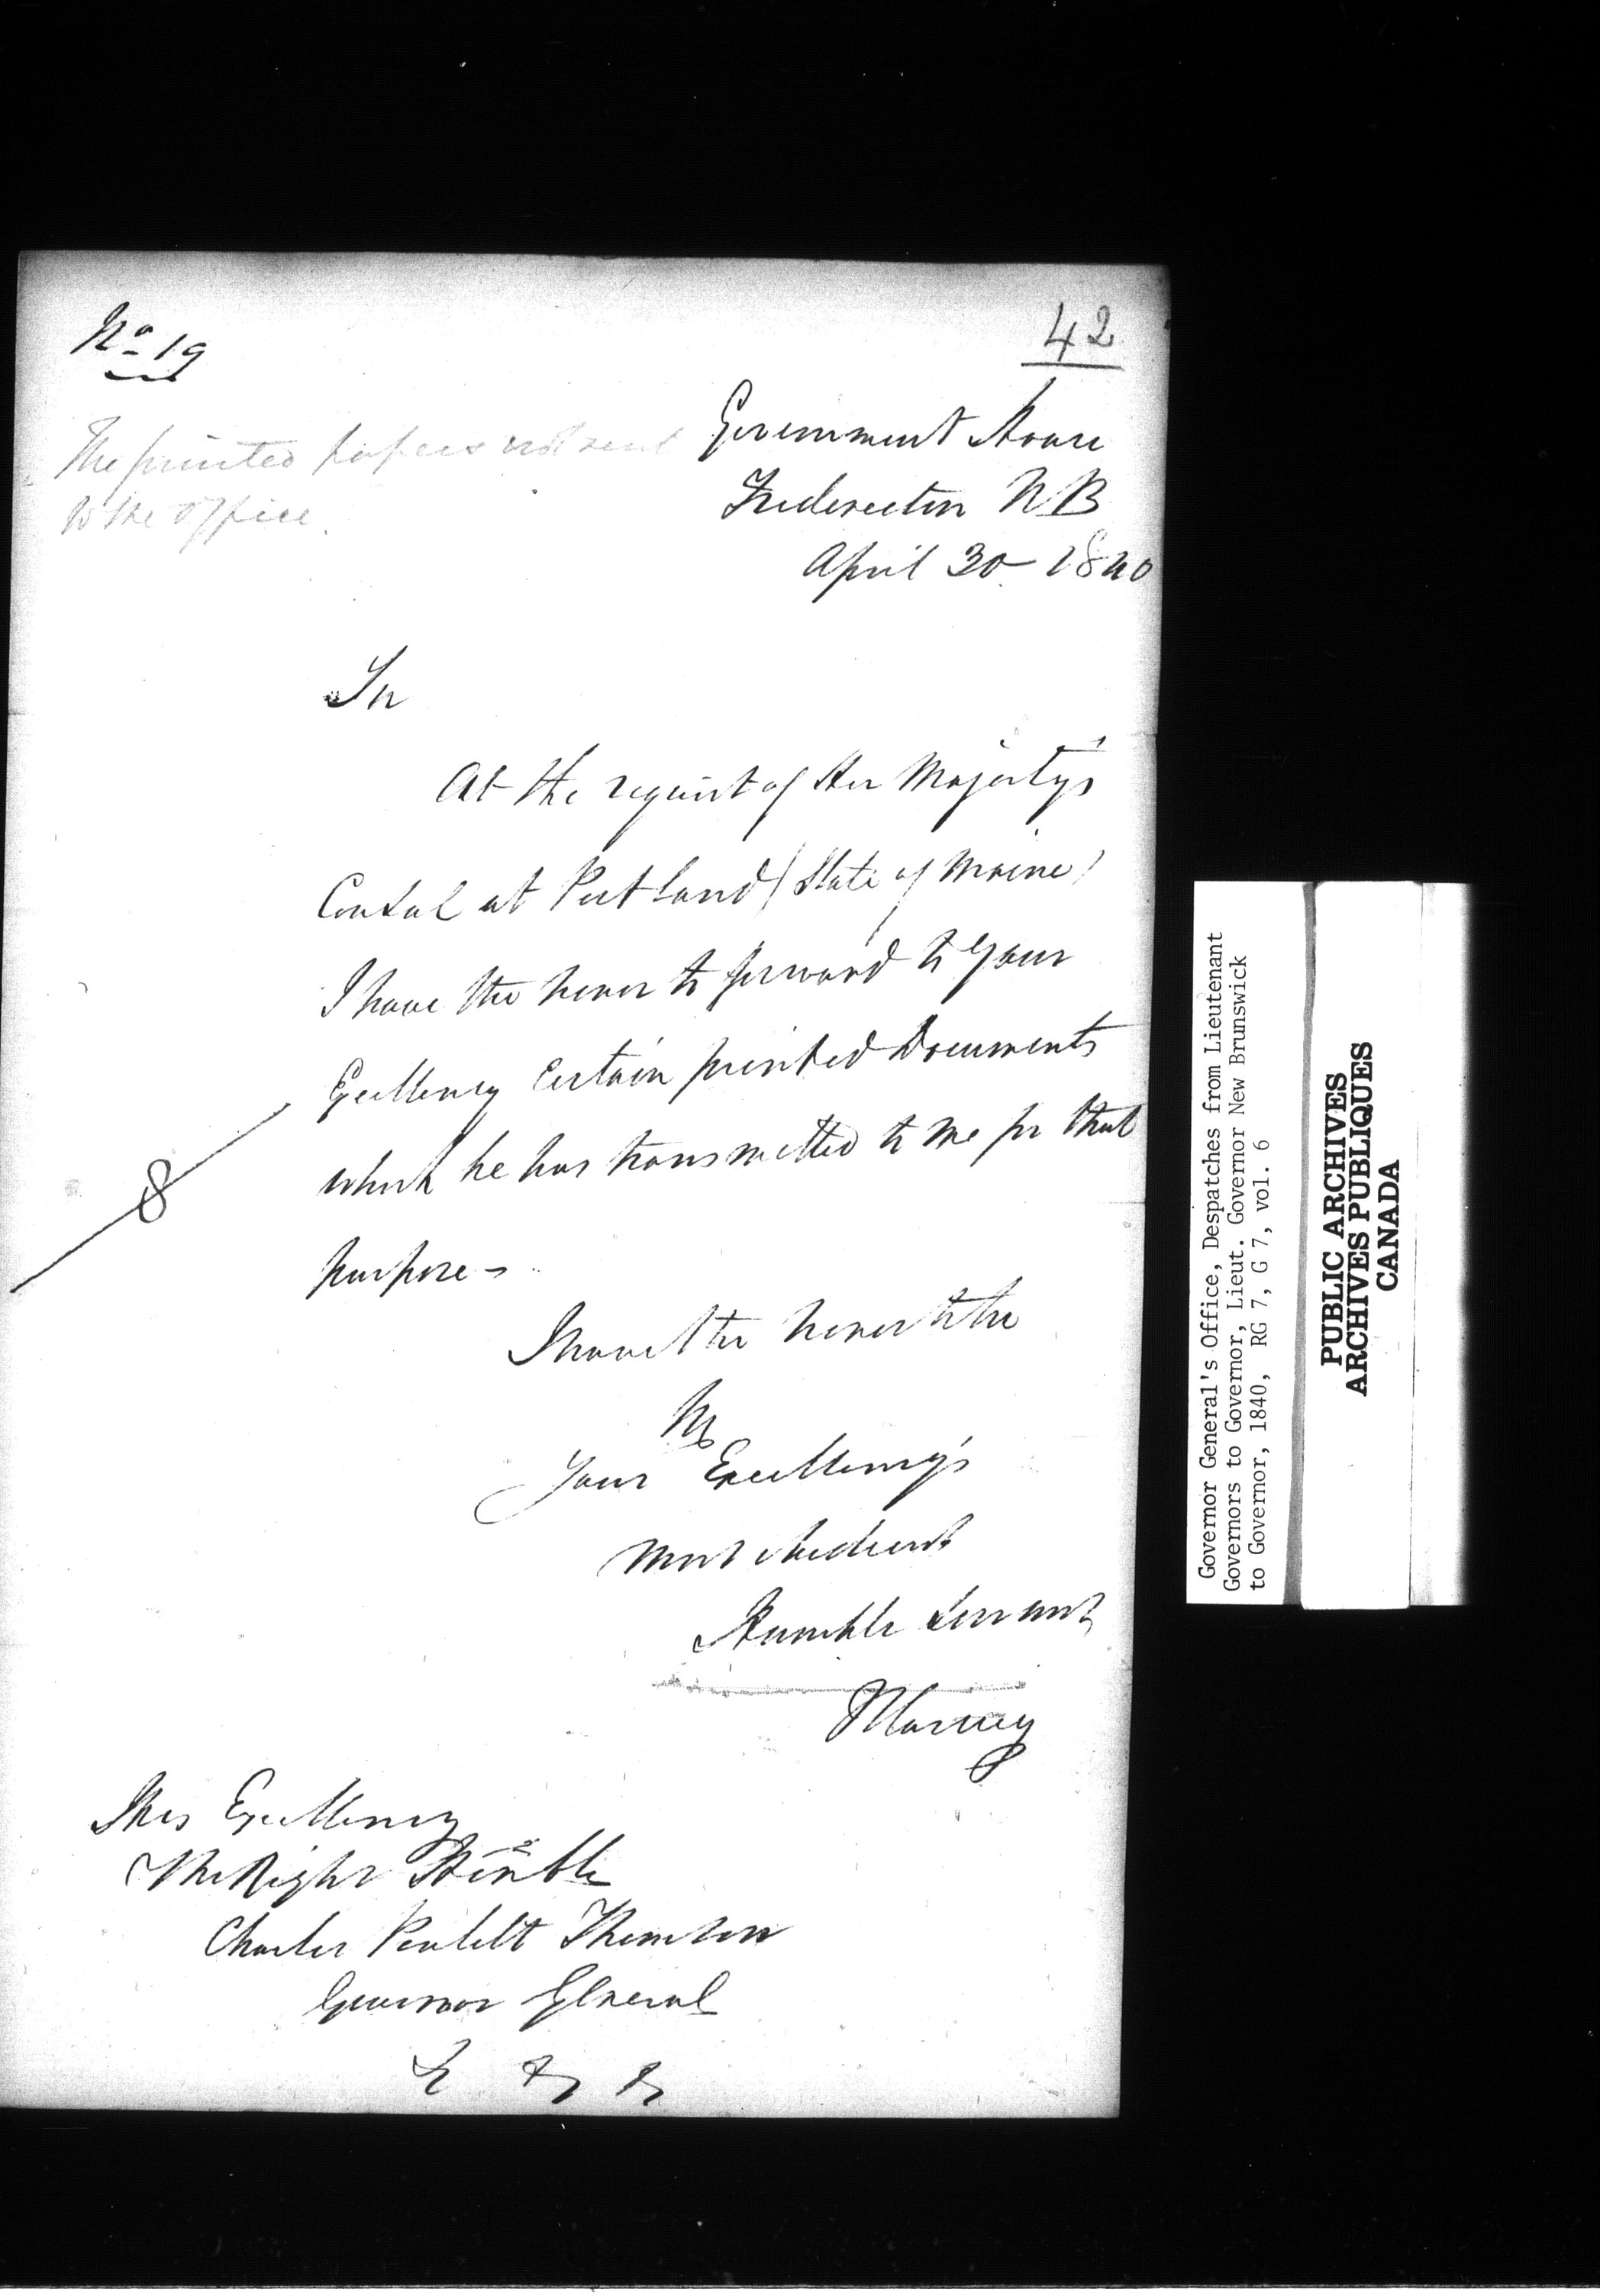 No 19
42
The printed papers not sent
to the office.
Government House
Fredericton N B
April 30 1840
Sir
At the request of Her Majesty's
Consul at Portland (State of Maine)
I have the honor to forward to Your
Excellency certain printed Documents
which he has transmitted to me for that
purpose -
8
I have the honor to be
Sir
Your Excellency's
Most obedient
Humble Servant
J Harvey
His Excellency
The Right Honble
Charles Poulett Thomson
Governor General
& & &
Governor General's Office, Despatches from Lieutenant
Governors to Governor, Lieut. Governor New Brunswick
to Governor, 1840, RG 7, G 7, vol. 6
PUBLIC ARCHIVES
ARCHIVES PUBLIQUES
CANADA